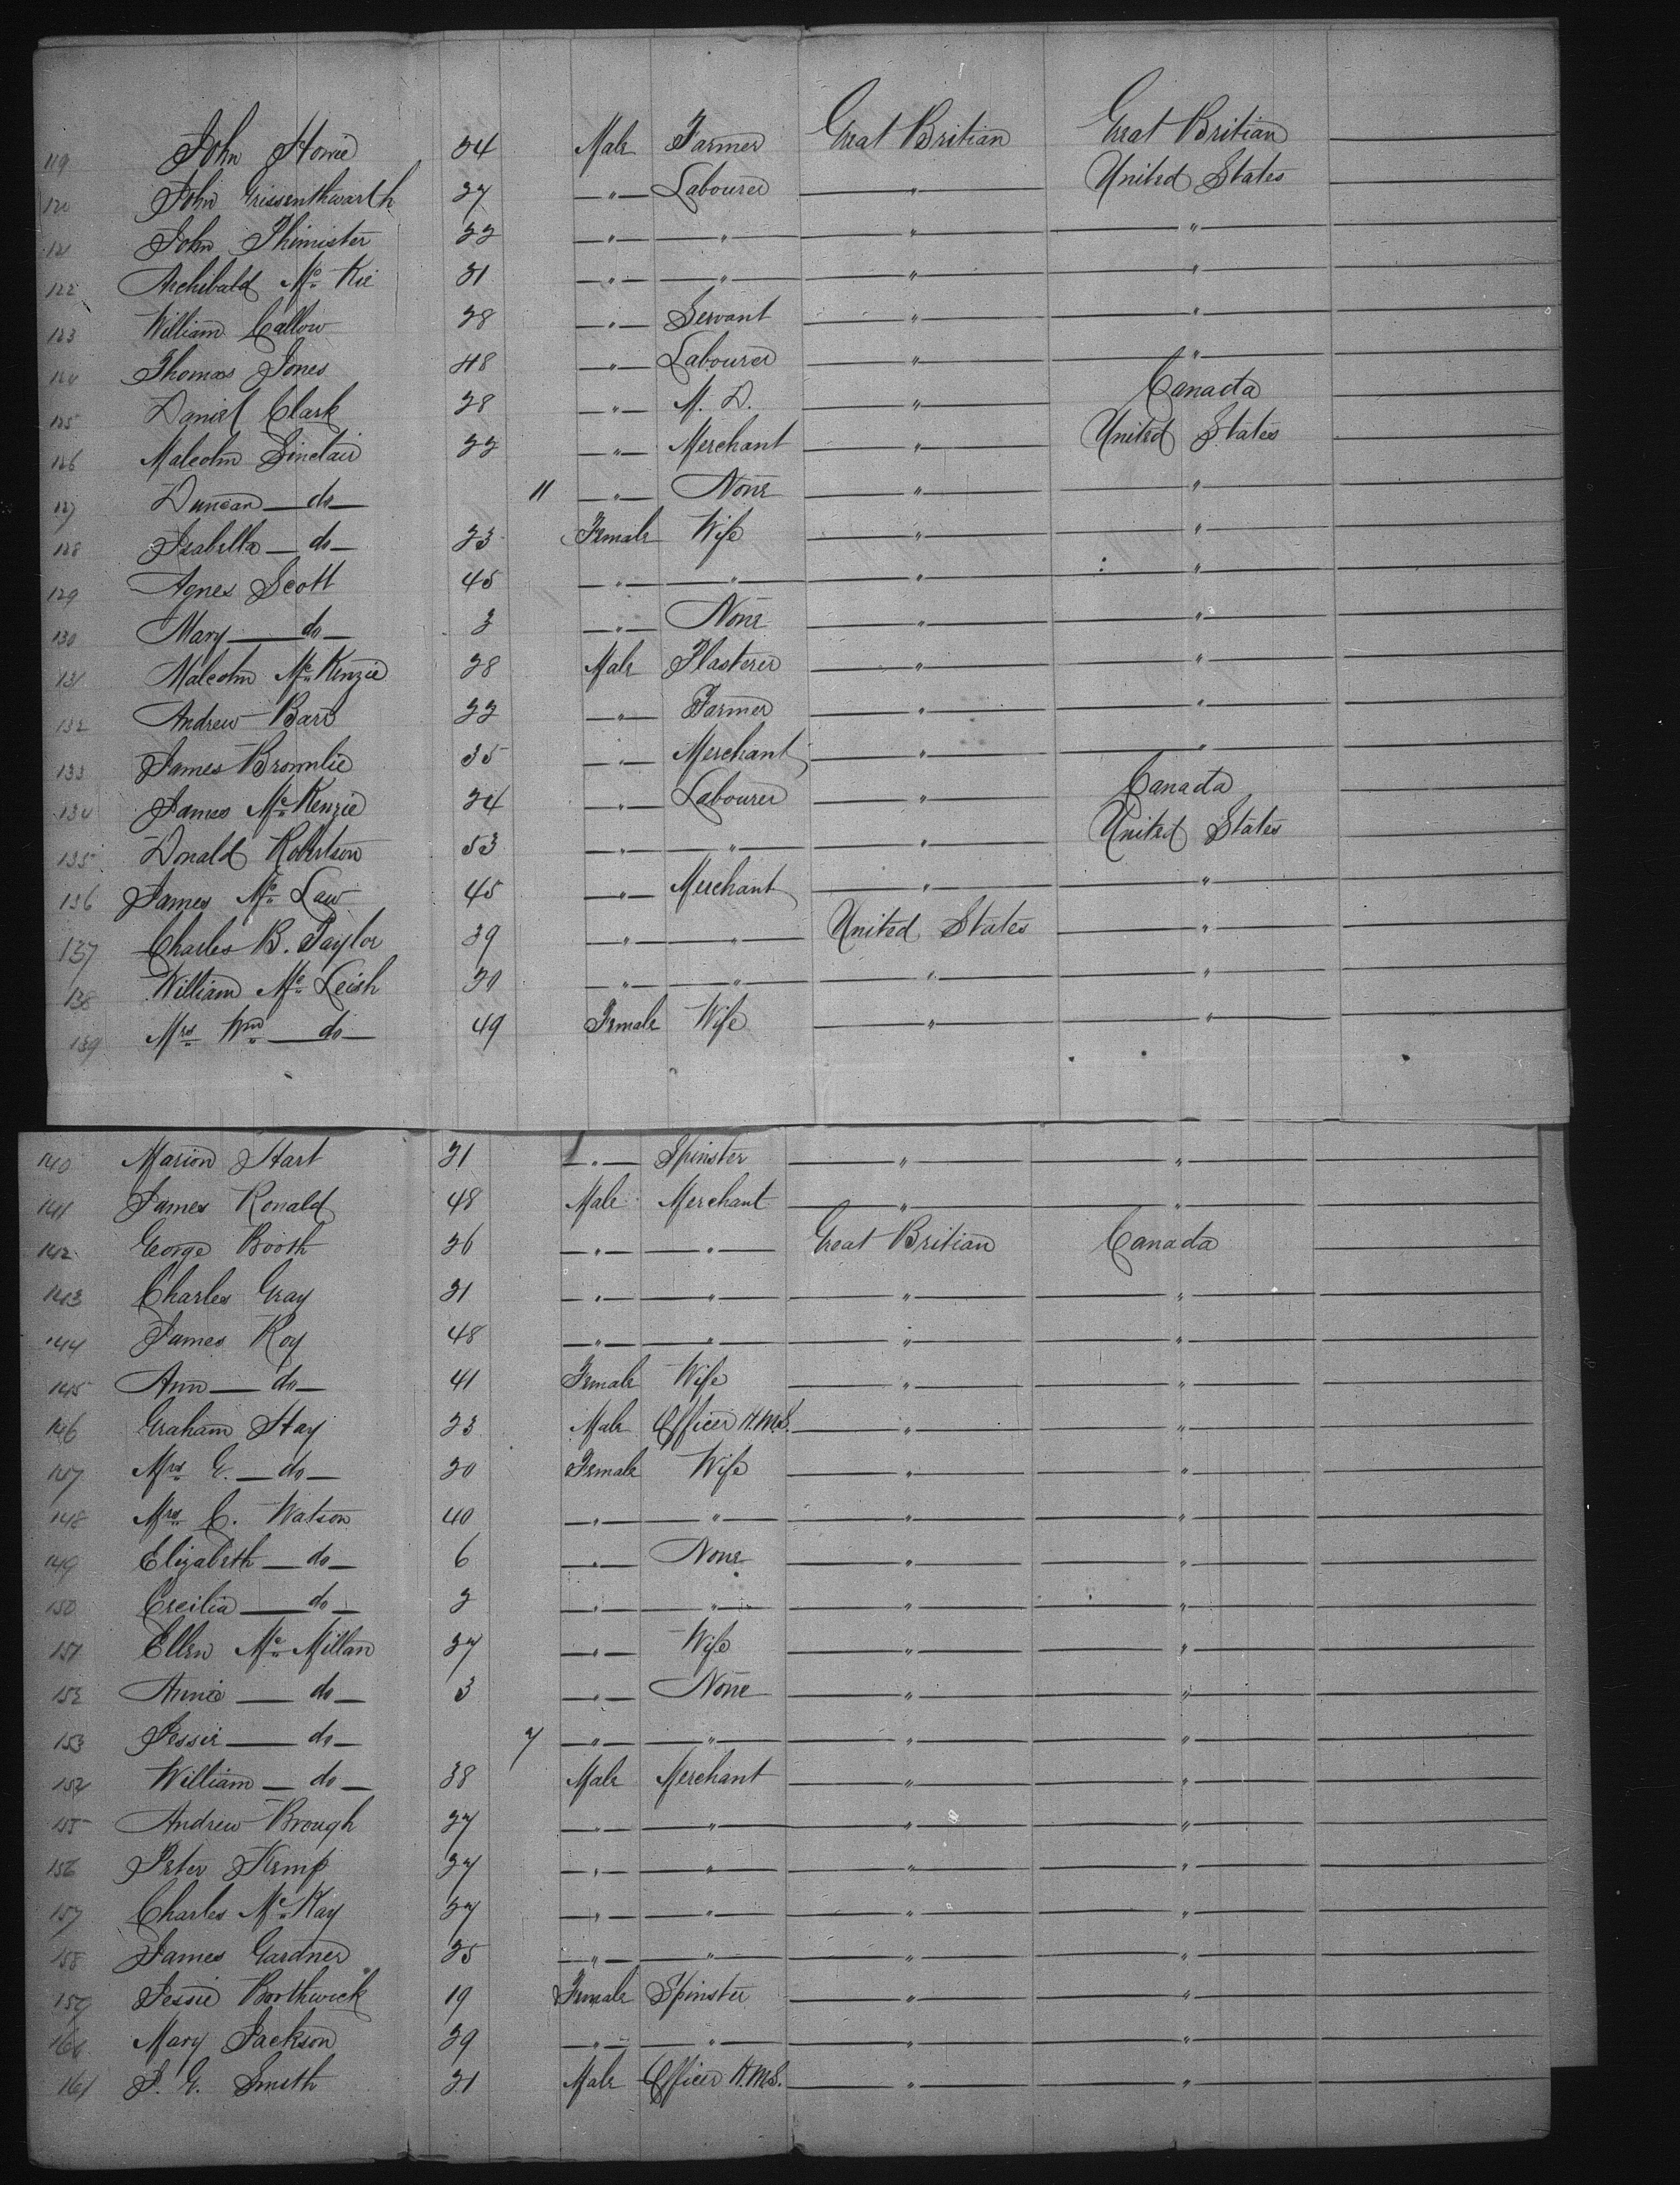 119 John Howie 34 Male Farmer Great Britian Great Britian
120 John Grissenthwarth 27 " Labourer " United States
121 John Phimister 22 " " " "
122 Archibald Mc Kie 31 " " " "
123 William Callow 28 " Servant " "
124 Thomas Jones 48 " Labourer " "
125 Daniel Clark 28 " M. D. " Canada
126 Malcolm Sinclair 22 " Merchant " United States
127 Duncan do 11 " None " "
128 Isabella do 23 Female Wife " "
129 Agnes Scott 45 " " " "
130 Mary do 3 " None " "
131 Malcolm McKenzie 28 Male Plasterer " "
132 Andrew Barr 22 " Farmer " "
133 James Brownlie 35 " Merchant " "
134 James McKenzie 24 " Labourer " Canada
135 Donald Robertson 53 " " " United States
136 James Mc Law 45 " Merchant " "
137 Charles B. Taylor 39 " " United States "
138 William Mc Leish 30 " " " "
139 Mrs Wm do 49 Female Wife " "
140 Marion Hart 21 " Spinster " "
141 James Ronald 48 Male Merchant " "
142 George Booth 26 " " Great Britian Canada
143 Charles Gray 31 " " " "
144 James Roy 48 " " " "
145 Ann do 41 Female Wife " "
146 Graham Hay 23 Male Officer H.M.S. " "
147 Mrs G. do 20 Female Wife " "
148 Mrs C. Watson 40 " " " "
149 Elizabeth do 6 " None " "
150 Cecilia do 2 " " " "
151 Ellen Mc Millan 27 " Wife " "
152 Annie do 3 " None " "
153 Jessie do 7 " " " "
154 William do 38 Male Merchant " "
155 Andrew Brough 27 " " " "
156 Peter Kemp 37 " " " "
157 Charles McKay 27 " " " "
158 James Gardner 25 " " " "
159 Jessie Borthwick 19 Female Spinster " "
160 Mary Jackson 29 " " " "
161 J. G. Smith 21 Male Officer H.M.S. " "